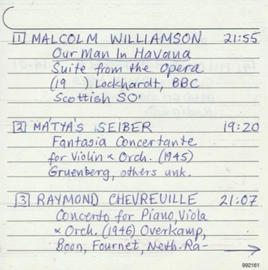 1 MALCOLM WILLIAMSON 21:55
Our Man In Havana
Suite from the Opera
(19 ) Lockhardt, BBC
Scottish SO'
2 MATYA'S SEIBER 19:20
Fantasia Concertante
for Violin & Orch. (1945)
Gruenberg, others unk.
3 RAYMOND CHEVREUILLE 21:07
Concerto for Piano, Viola
& Orch. (1946) Overkamp,
Boon, Fournet, Neth. Ra-
992161